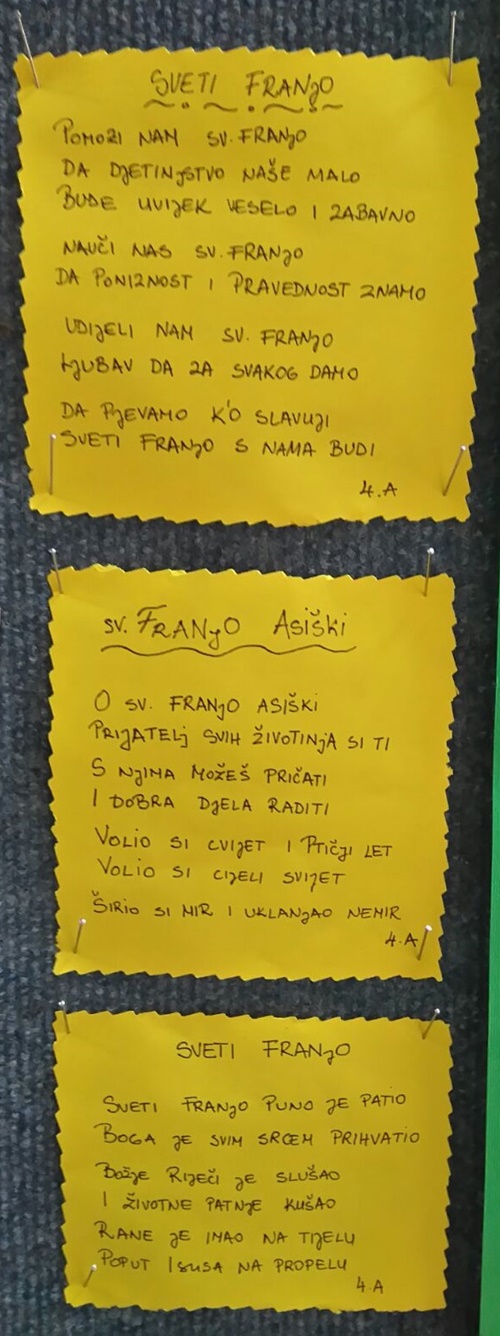 SVETI FRANJO
POMOZI NAM SV. FRANJO
DA DJETINJSTVO NAŠE MALO
BUDE UVIJEK VESELO I ZABAVNO
NAUČI NAS SV. FRANJO
DA PONIZNOST I PRAVEDNOST ZNAMO
UDIJELI NAM SV. FRANJO
LJUBAV DA ZA SVAKOG DAMO
DA PJEVAMO K'O SLAVUJI
SVETI FRANJO S NAMA BUDI
4.A
SV. FRANJO ASIŠKI
O SV. FRANJO ASIŠKI
PRIJATELJ SVIH ŽIVOTINJA SI TI
S NJIMA MOŽEŠ PRIČATI
I DOBRA DJELA RADITI
VOLIO SI CVIJET I PTIČJI LET
VOLIO SI CIJELI SVIJET
ŠIRIO SI MIR I UKLANJAO NEMIR
4.A
SVETI FRANJO
SVETI FRANJO PUNO JE PATIO
BOGA JE SVIM SRCEM PRIHVATIO
BOŽJE RIJEČI JE SLUŠAO
I ŽIVOTNE PATNJE KUŠAO
RANE JE IMAO NA TIJELU
POPUT ISUSA NA PROPELU
4.A